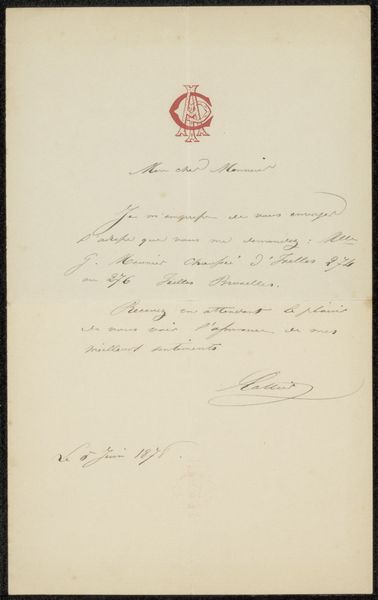 Mon cher Monsieur
Je m'empresse de vous envoyer
l'adresse que vous me demandez : Mlle
G. Meunier chaussée d'Ixelles 274
ou 276 Ixelles Bruxelles.
Recevez en attendant le plaisir
de vous voir l'assurance de mes
meilleurs sentiments
Le 5 Juin 1875.